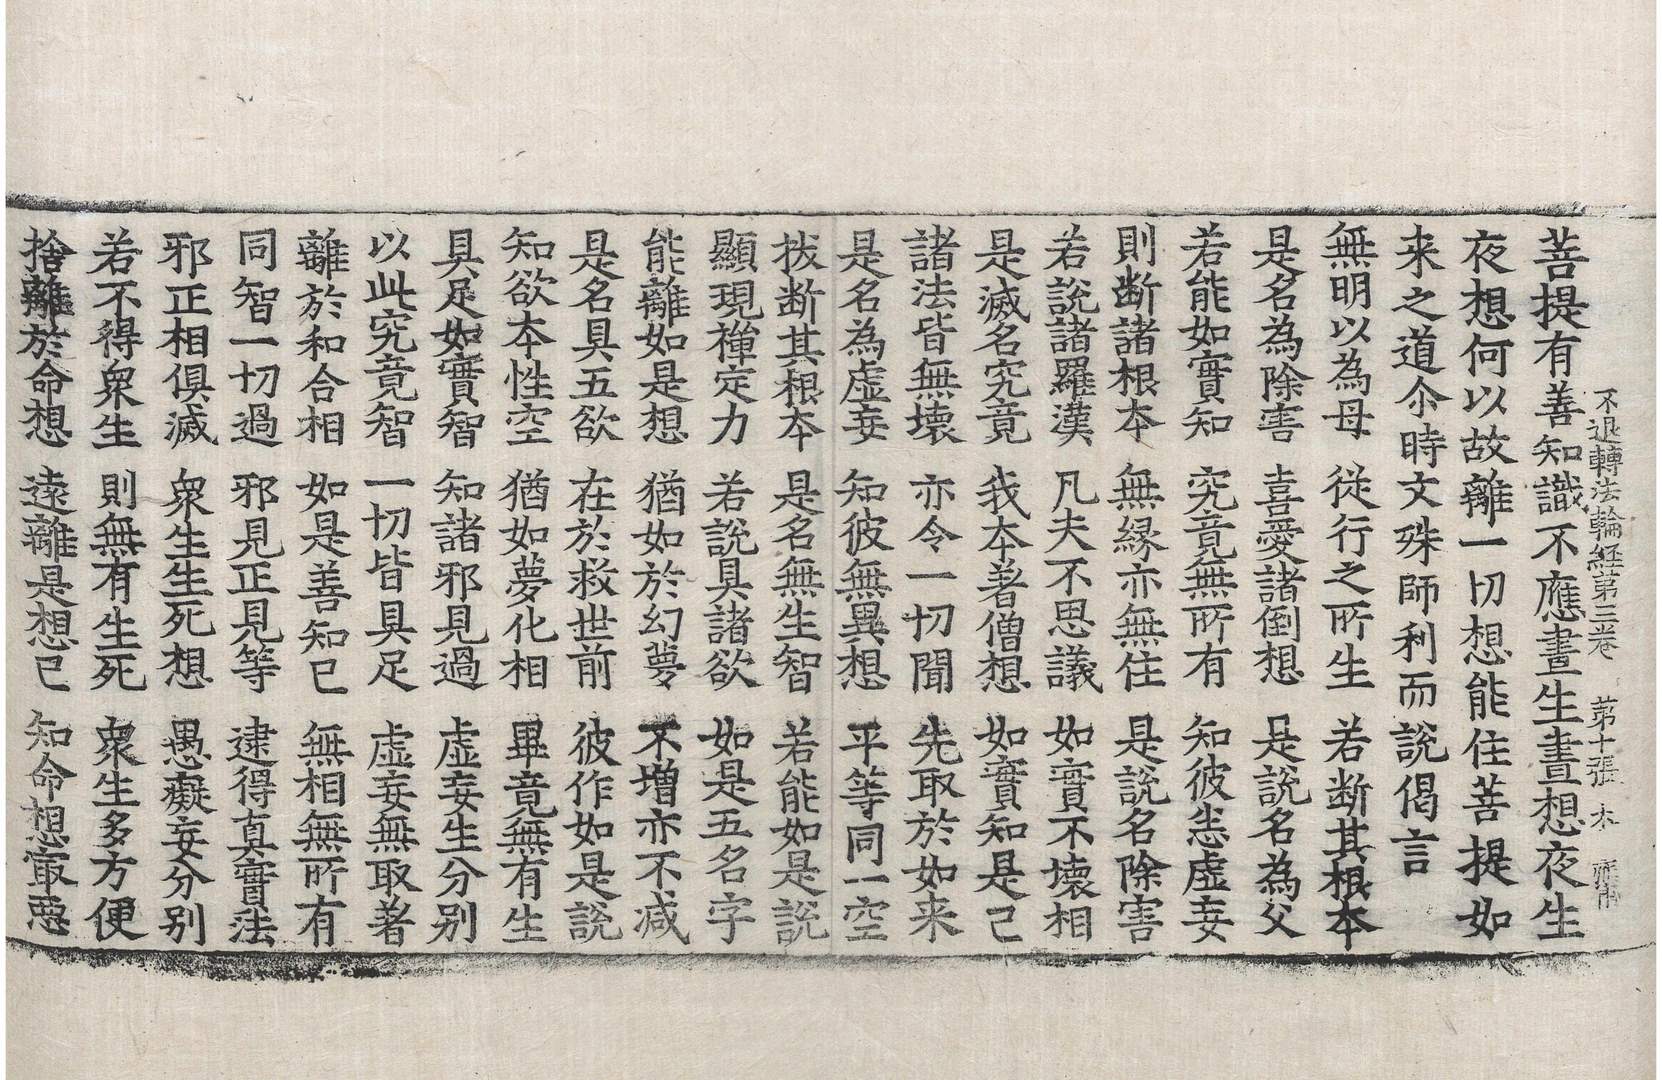 不退轉法輪經第三卷 第十張 木
菩提有善知識不應晝生晝想夜生
夜想何以故離一切想能住菩提如
来之道尒時文殊師利而說偈言
無明以為母 從行之所生 若断其根本
是名為除害 喜愛諸倒想 是說名為父
若能如實知 究竟無所有 知彼恙虛妄
則断諸根本 無縁亦無住 是說名除害
若說諸羅漢 凡夫不思議 如實不壞相
是滅名究竟 我本著僧想 如實知是已
諸法皆無壞 亦令一切聞 先取於如来
是名為虛妄 知彼無異想 平等同一空
拔断其根本 是名無生智 若能如是説
顯現禪定力 若說具諸欲 如是五名字
能離如是想 猶如於幻夢 不增亦不减
是名具五欲 在於救世前 彼作如是説
知欲本性空 猶如夢化相 畢竟無有生
具足如實智 知諸邪見過 虛妄生分别
以此究竟智 一切皆具足 虛妄無取著
離於和合相 如是善知已 無相無所有
同智一切過 邪見正見等 逮得真實法
邪正相俱滅 衆生生死想 愚癡妄分别
若不得衆生 則無有生死 衆生多方便
捨離於命想 遠離是想已 知命想寂𢙣